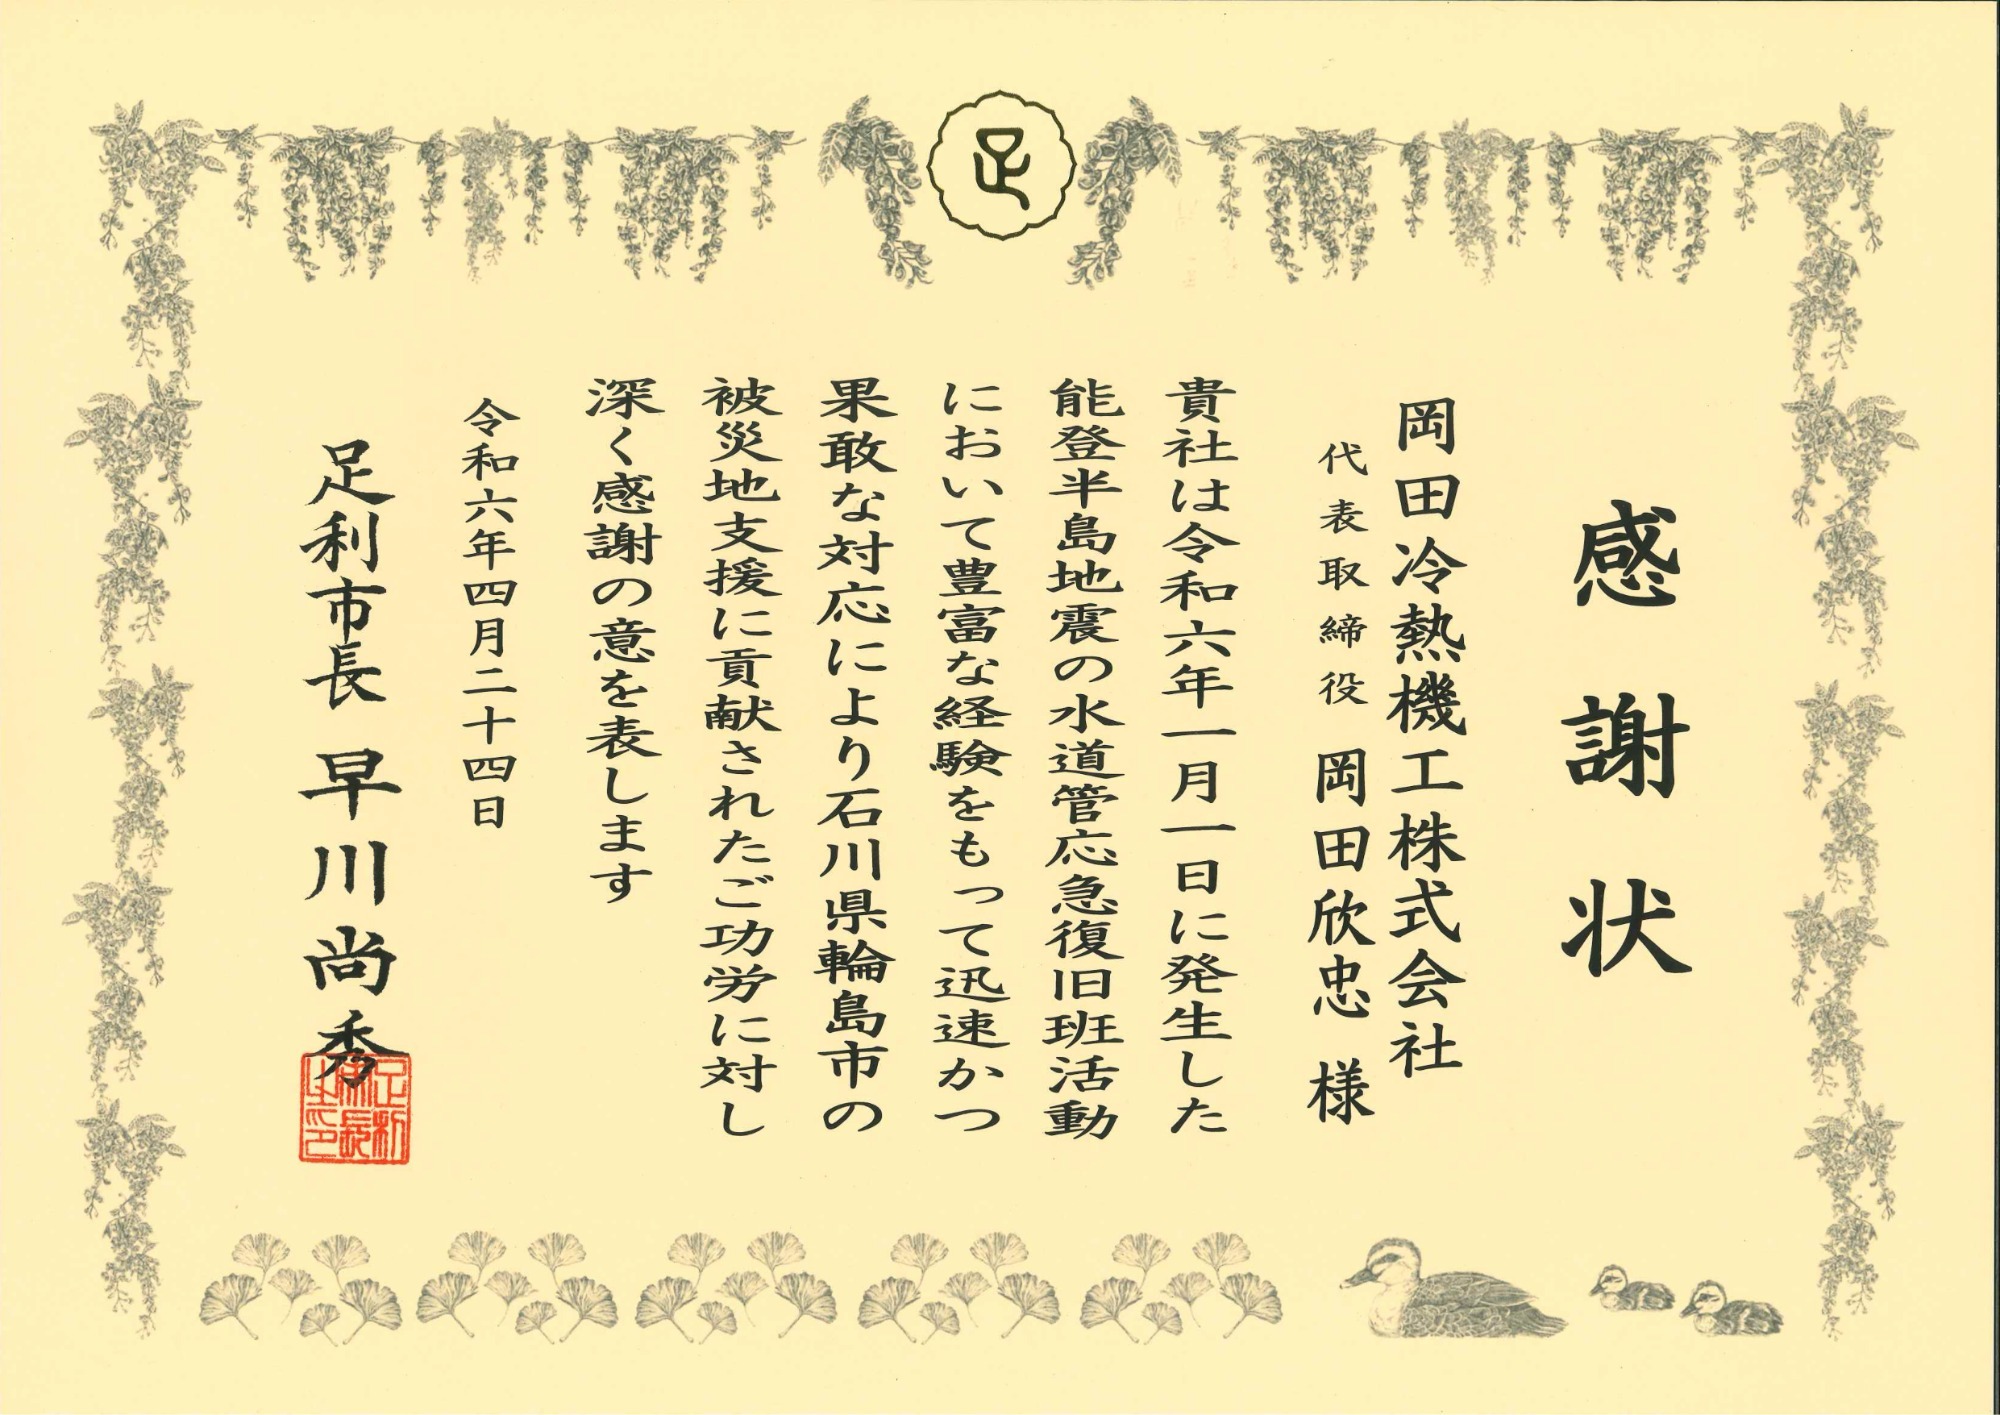 足
感謝状
岡田冷熱機工株式会社
代表取締役 岡田欣忠 様
貴社は令和六年一月一日に発生した
能登半島地震の水道管応急復旧班活動
において豊富な経験をもって迅速かつ
果敢な対応により石川県輪島市の
被災地支援に貢献されたご功労に対し
深く感謝の意を表します
令和六年四月二十四日
足利市長 早川尚秀
足利
市長
之印